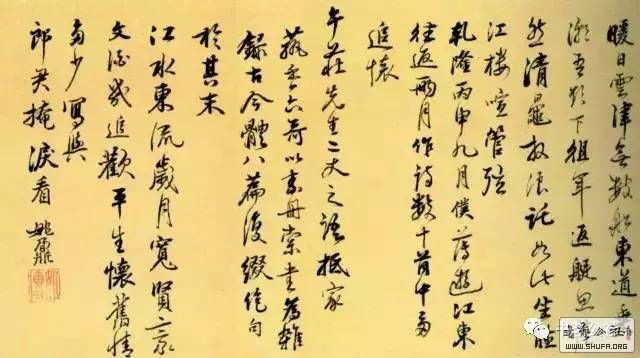 暖日雲津無數船東道
下徂年返艇思
然清放浪託此生
江樓喧管弦
乾隆丙申九月僕薄遊江東
往返兩月作詩數十首中多
追懷
午莊先生二丈之語抵家
六哥以素冊索書為雜
錄古今體八篇復綴絕句
於其末
江水東流歲月寬賢豪
文酒幾追歡平生懷舊情
多少寫與
郎君掩淚看 姚鼐
書藝公社
WWW.SHUFA.ORG